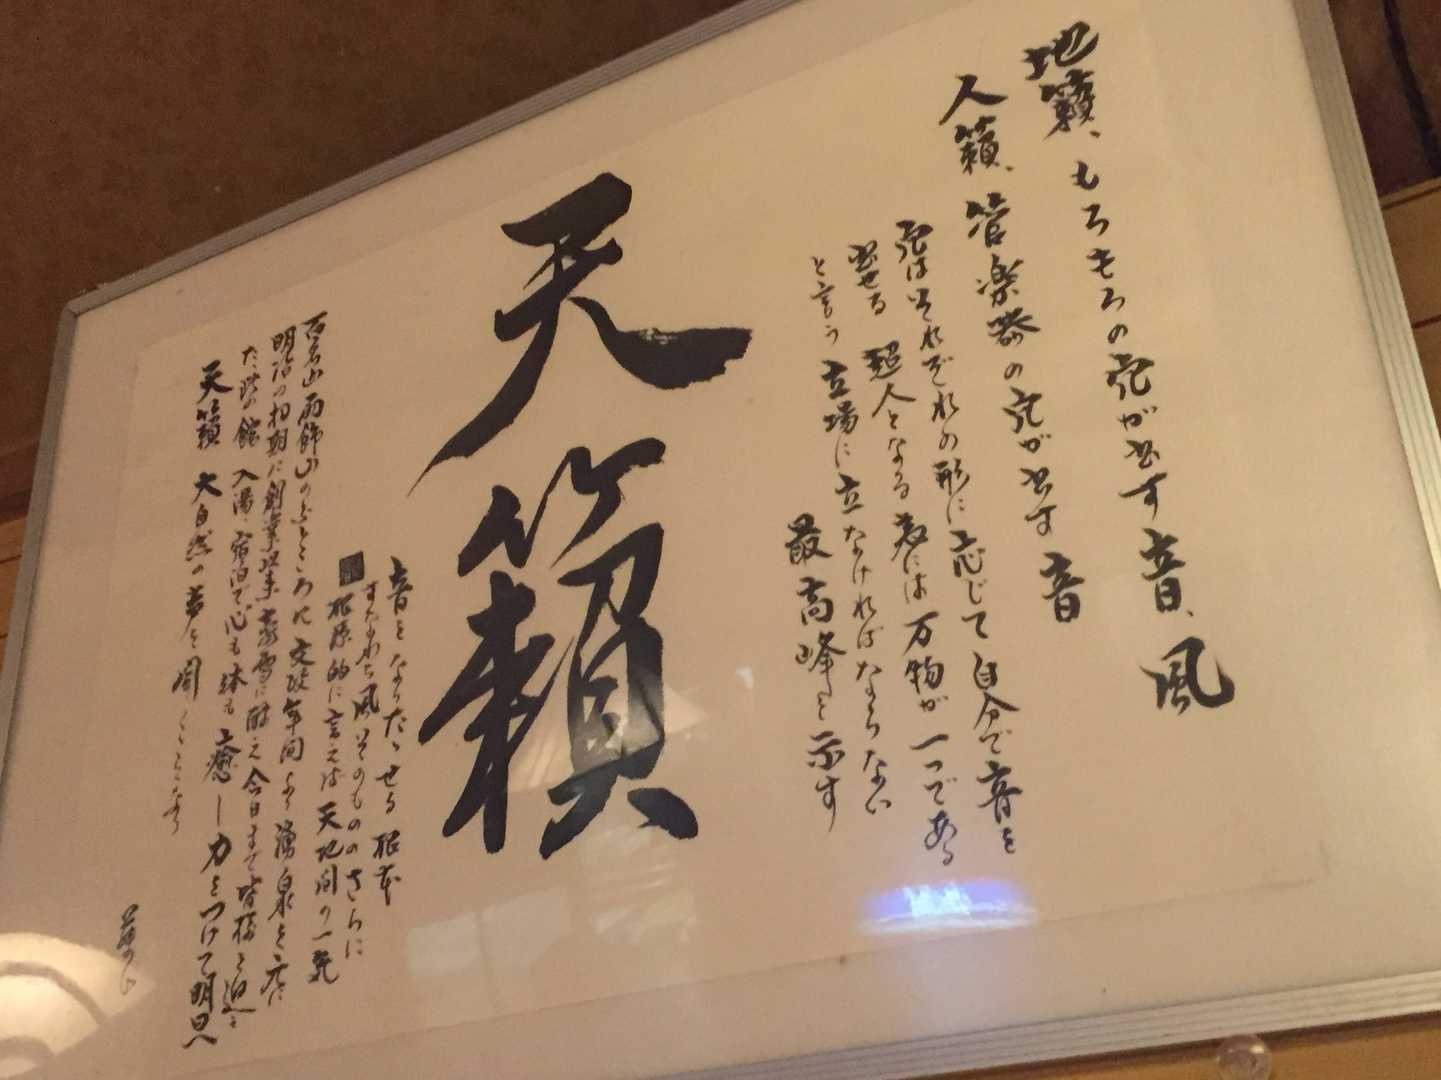 地籟、もろもろの穴が出す音、風
人籟、管楽器の穴が出す音
穴はそれぞれの形に応じて自分で音を
出せる 超人となる為には万物が一つである
と言う立場に立なければならない
最高峰を示す
天籟
音をなりたゝせる根本
すなわち風そのもののさらに
根源的に言えば天地間の一気
百名山雨飾山のふところに文政年間より湧泉を元に
明治の初期に創業以来豪雪に耐え今日まで皆様を迎え
た 館 入湯、宿泊で心も体も癒し力をつけて明日へ
天籟 大自然の声を聞くところ